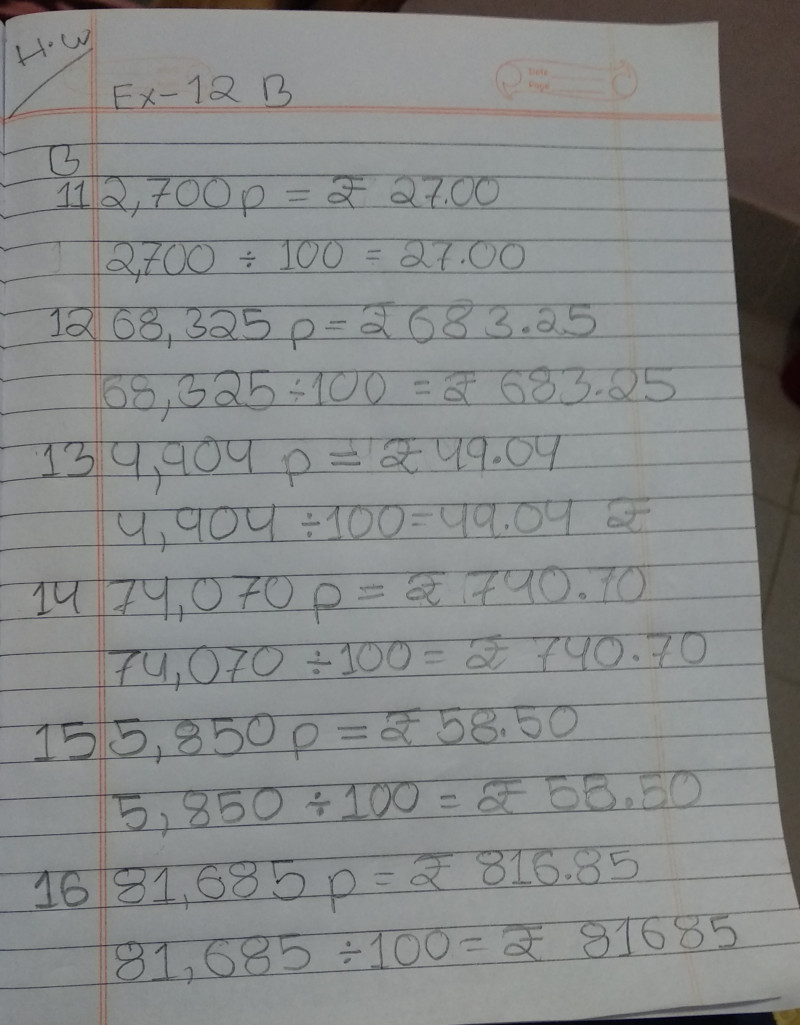 H.W
Ex-12 B
Date
Page
B
11 2,700 p = ₹ 27.00
2,700 ÷ 100 = 27.00
12 68,325 p = ₹ 683.25
68,325 ÷ 100 = ₹ 683.25
13 4,904 p = ₹ 49.04
4,904 ÷ 100 = 49.04 ₹
14 74,070 p = ₹ 740.70
74,070 ÷ 100 = ₹ 740.70
15 5,850 p = ₹ 58.50
5,850 ÷ 100 = ₹ 58.50
16 81,685 p = ₹ 816.85
81,685 ÷ 100 = ₹ 81685